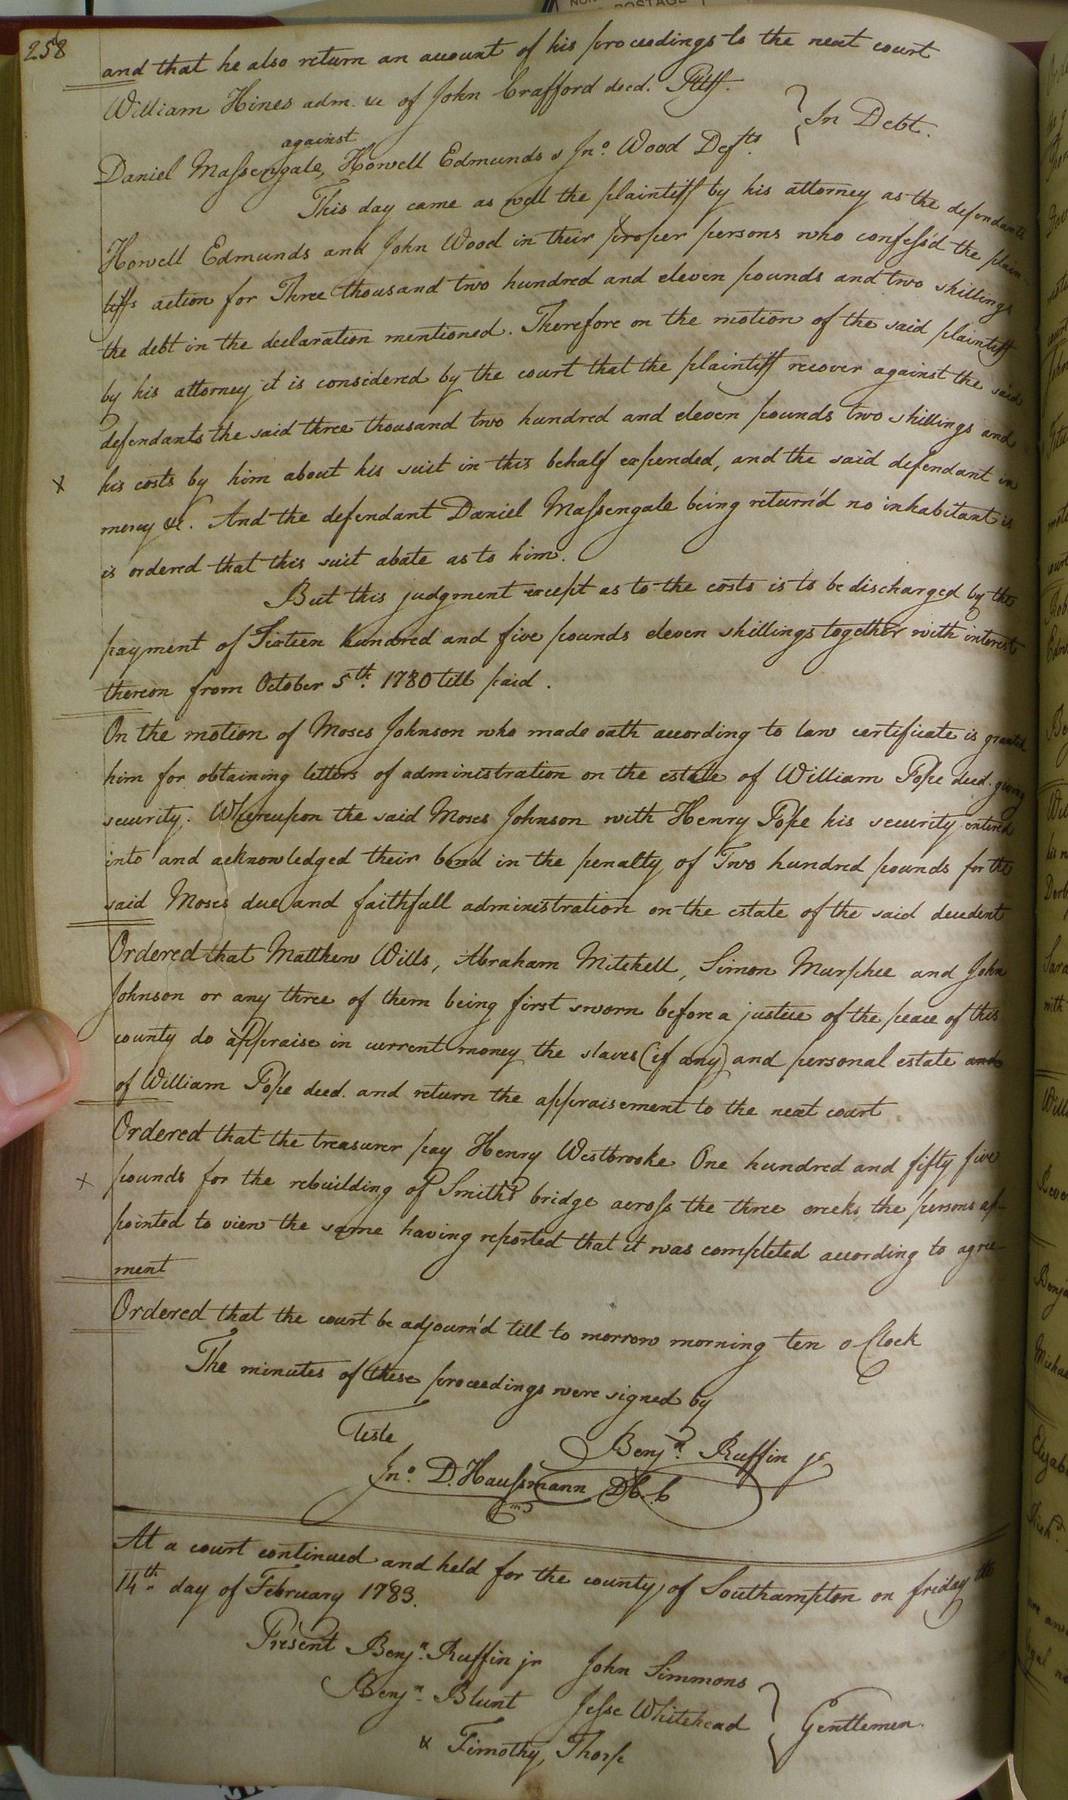 258
and that he also return an account of his proceedings to the next court
William Hines adm. &c of John Crafford decd. Pltff.
against
In Debt.
Daniel Massengale, Howell Edmunds & Jno. Wood Defts.
This day came as well the plaintiff by his attorney as the defendants
Howell Edmunds and John Wood in their proper persons who confess'd the plain-
tiffs action for Three thousand two hundred and eleven pounds and two shillings
the debt in the declaration mentioned. Therefore on the motion of the said plaintiff
by his attorney it is considered by the court that the plaintiff recover against the said
defendants the said three thousand two hundred and eleven pounds two shillings and
x his costs by him about his suit in this behalf expended, and the said defendant in
mercy &c. And the defendant Daniel Massengale being return'd no inhabitant is
is ordered that this suit abate as to him.
But this judgment except as to the costs is to be discharged by the
payment of Sixteen hundred and five pounds eleven shillings together with interest
thereon from October 5th. 1780 till paid.
On the motion of Moses Johnson who made oath according to law certificate is granted
him for obtaining letters of administration on the estate of William Pope decd. giving
security. Whereupon the said Moses Johnson with Henry Pope his security entered
into and acknowledged their bond in the penalty of Two hundred pounds for the
said Moses due and faithfull administration on the estate of the said decedent
Ordered that Matthew Wills, Abraham Mitchell, Simon Murphee and John
Johnson or any three of them being first sworn before a justice of the peace of this
county do appraise in current money the slaves (if any) and personal estate and
of William Pope decd. and return the appraisement to the next court.
Ordered that the treasurer pay Henry Westbrooke One hundred and fifty five
x pounds for the rebuilding of Smith's bridge across the three creeks the persons ap-
pointed to view the same having reported that it was completed according to agree-
ment
Ordered that the court be adjourn'd till to morrow morning ten o Clock
The minutes of these proceedings were signed by
Teste
Benjn. Ruffin jr
Jno. D. Haussmann D C C
At a court continued and held for the county of Southampton on friday the
14th. day of February 1783.
Present Benjn. Ruffin jr John Simmons
Benjn. Blunt Jesse Whitehead
Gentlemen.
& Timothy Thorp